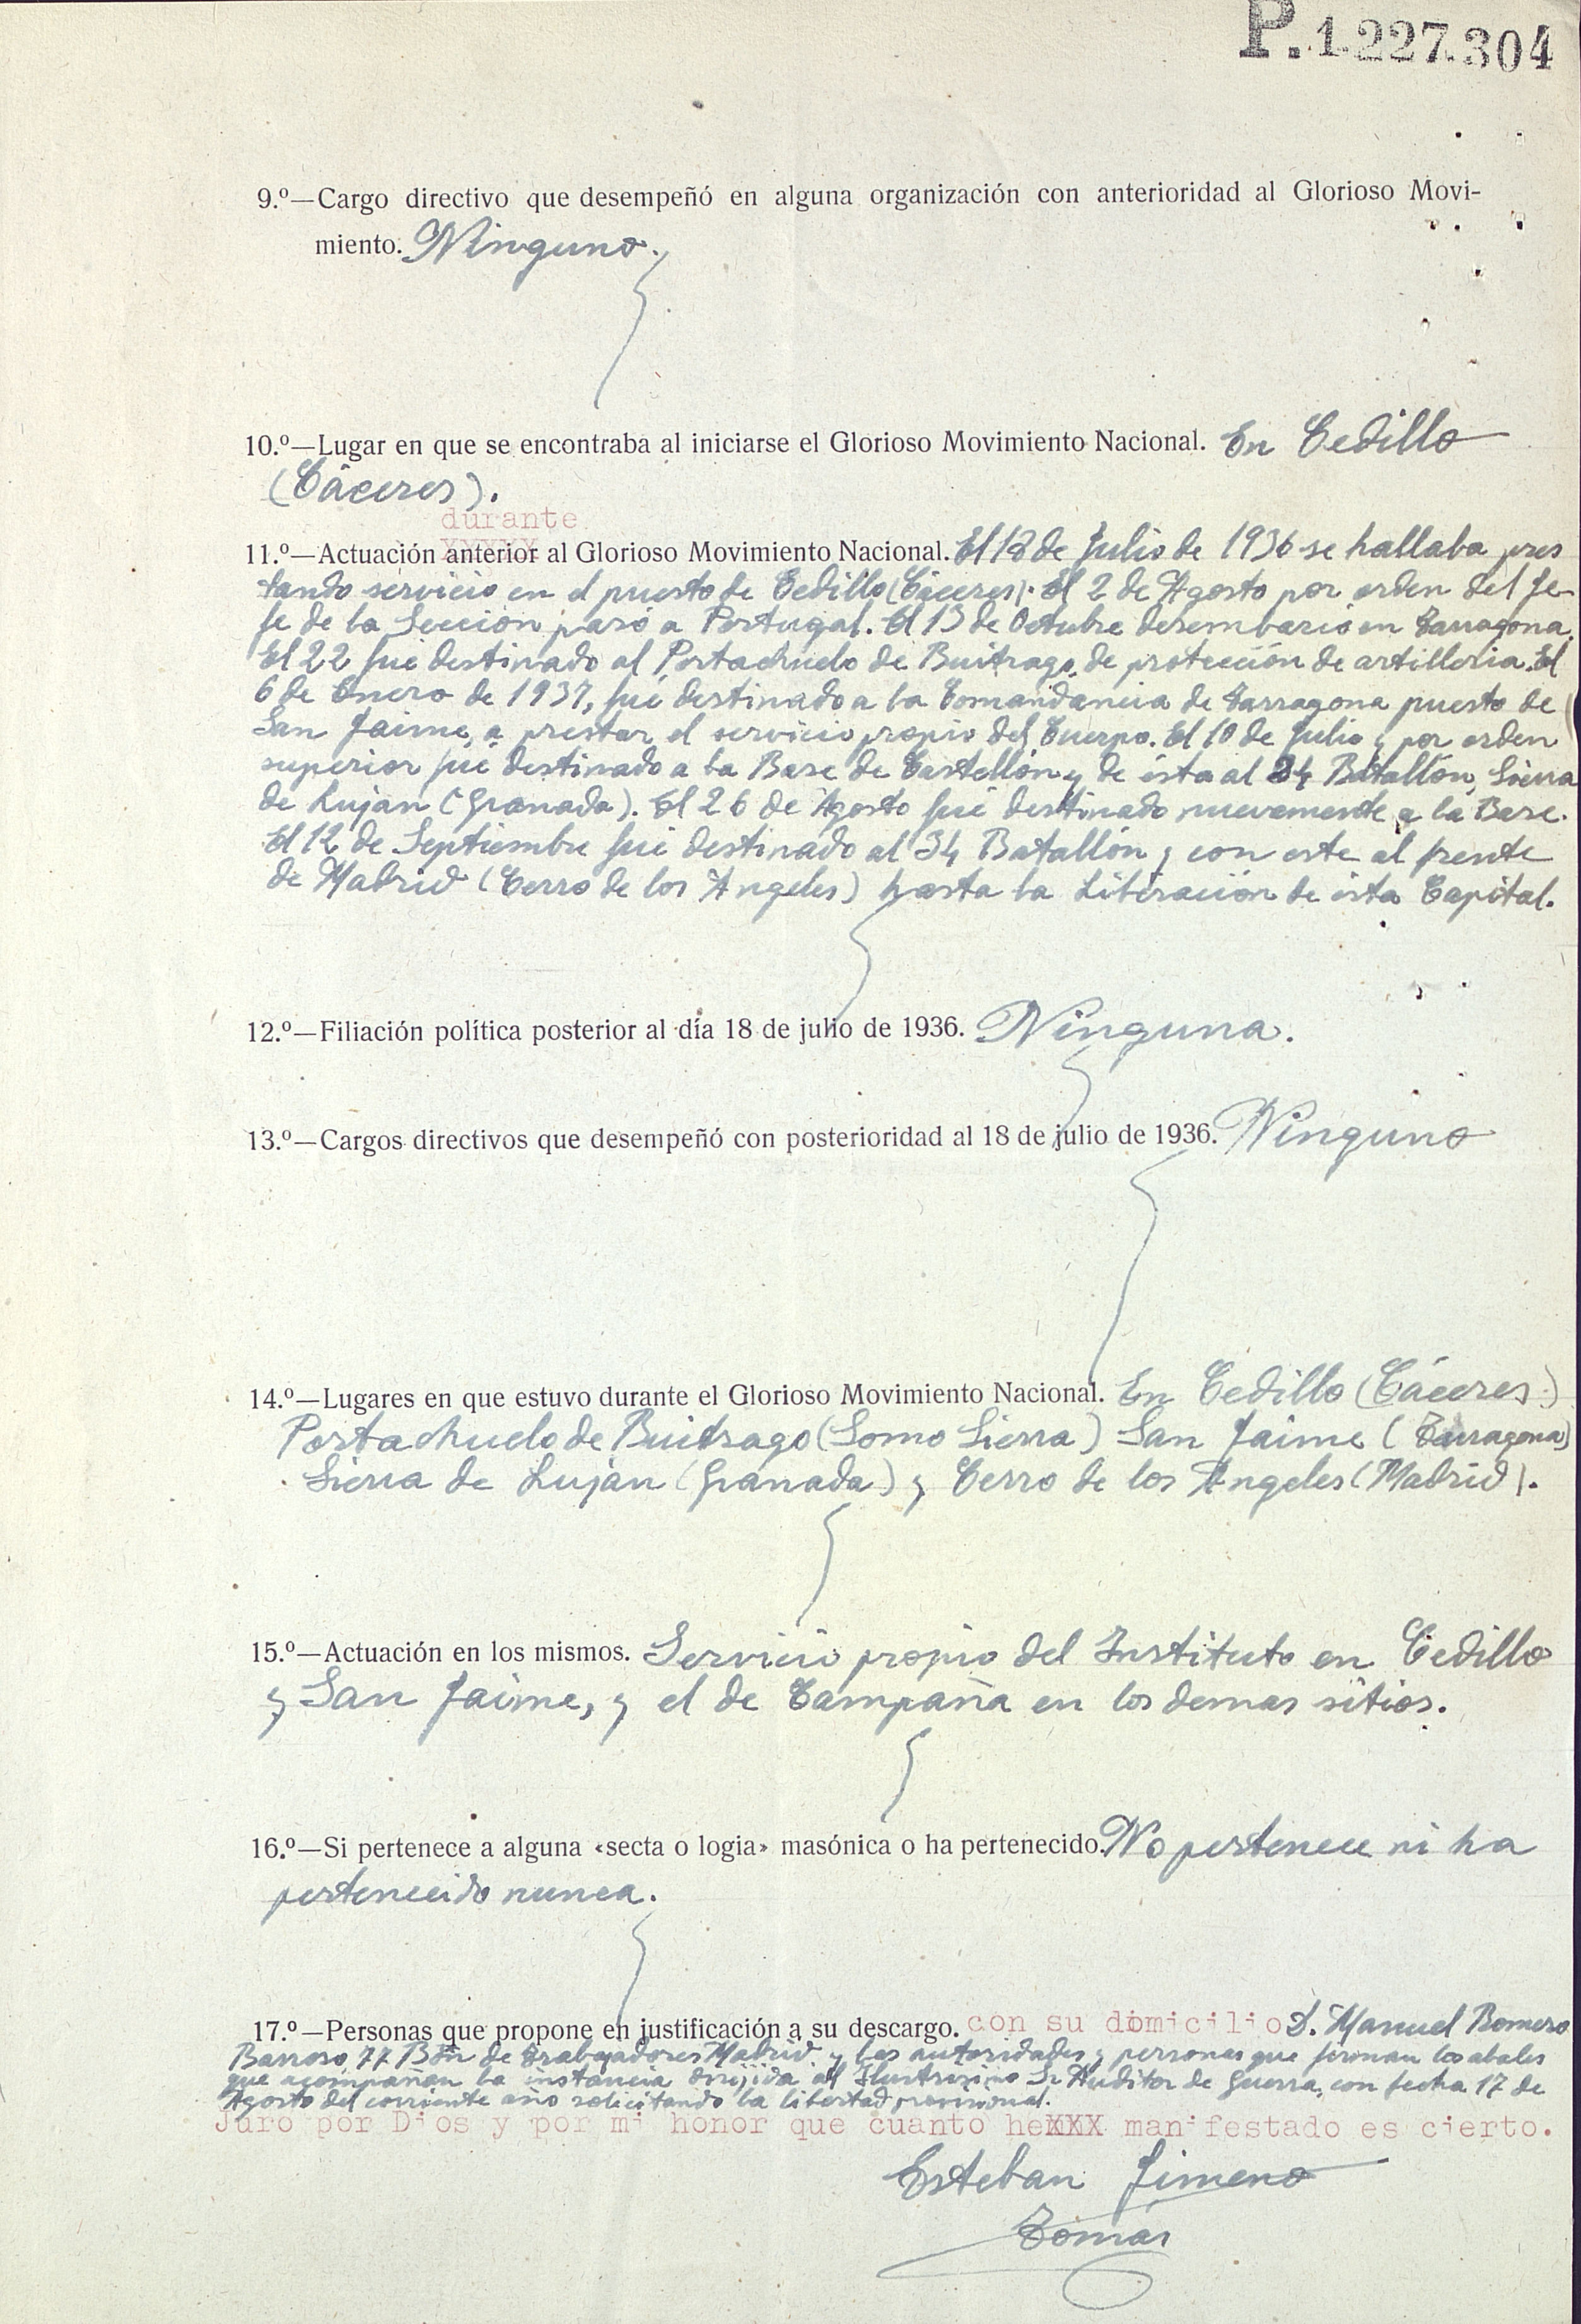 P. 1.227.304
9.º—Cargo directivo que desempeñó en alguna organización con anterioridad al Glorioso Movi-
miento. Ninguno.
10.º—Lugar en que se encontraba al iniciarse el Glorioso Movimiento Nacional. En Cedillo
(Cáceres).
durante
11.º—Actuación anterior al Glorioso Movimiento Nacional. El 18 de Julio de 1936 se hallaba pres
tando servicio en el puesto de Cedillo (Cáceres). El 2 de Agosto por orden del Je-
fe de la Sección pasó a Portugal. El 13 de Octubre desembarcó en Tarragona.
El 22 fué destinado al Portachuelo de Buitrago, de protección de artilleria. El
6 de Enero de 1937, fué destinado a la Comandancia de Tarragona puesto de
San Jaime, a prestar el servicio propio del Cuerpo. El 10 de Julio y por orden
superior fué destinado a la Base de Castellón y de ésta al 34 Batallón, Sierra
de Lujan (Granada). El 26 de Agosto fué destinado nuevamente a la Base.
El 12 de Septiembre fué destinado al 34 Batallón y con este al frente
de Madrid (Cerro de los Angeles) hasta la Liberación de ésta Capital.
12.º—Filiación política posterior al día 18 de julio de 1936. Ninguna.
13.º—Cargos directivos que desempeñó con posterioridad al 18 de julio de 1936. Ninguno
14.º—Lugares en que estuvo durante el Glorioso Movimiento Nacional. En Cedillo (Cáceres)
Portachuelo de Buitrago (Somo Sierra) San Jaime (Tarragona)
Sierra de Lujan (Granada) y Cerro de los Angeles (Madrid).
15.º—Actuación en los mismos. Servicio propio del Instituto en Cedillo
y San Jaime, y el de Campaña en los demas sitios.
16.º—Si pertenece a alguna «secta o logia» masónica o ha pertenecido. No pertenece ni ha
pertenecido nunca.
17.º—Personas que propone en justificación a su descargo. con su domicilio D. Manuel Romero
Barroso, 77 Bón de Trabajadores Madrid y las autoridades y personas que firman los abales
que acompañan la instancia dirijida al Ilustrisimo Sr Auditor de Guerra, con fecha 17 de
Agosto del corriente año solicitando la libertad provisional.
Juro por Dios y por mi honor que cuanto heXXX manifestado es cierto.
Esteban Jimeno
Tomás